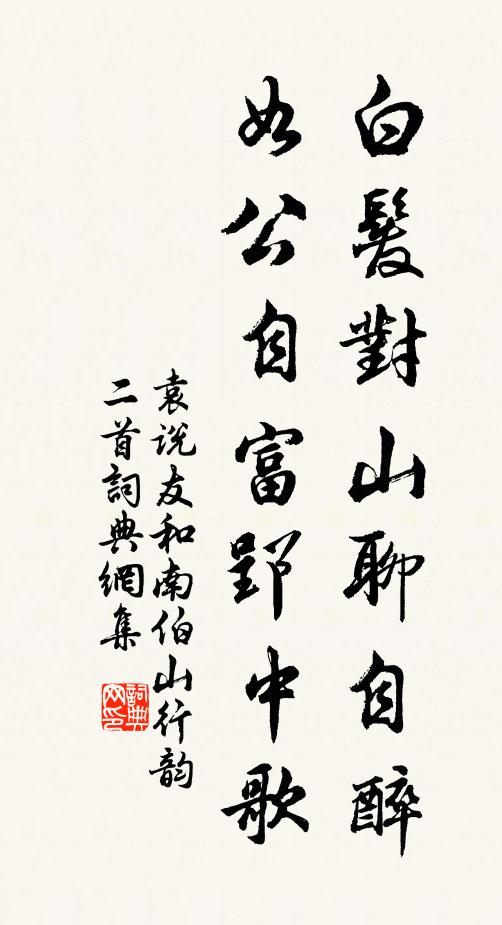 白髮對山聊自醉
如公自富郢中歌
袁说友和南伯山行韵
二首詞典網集
詞典网印